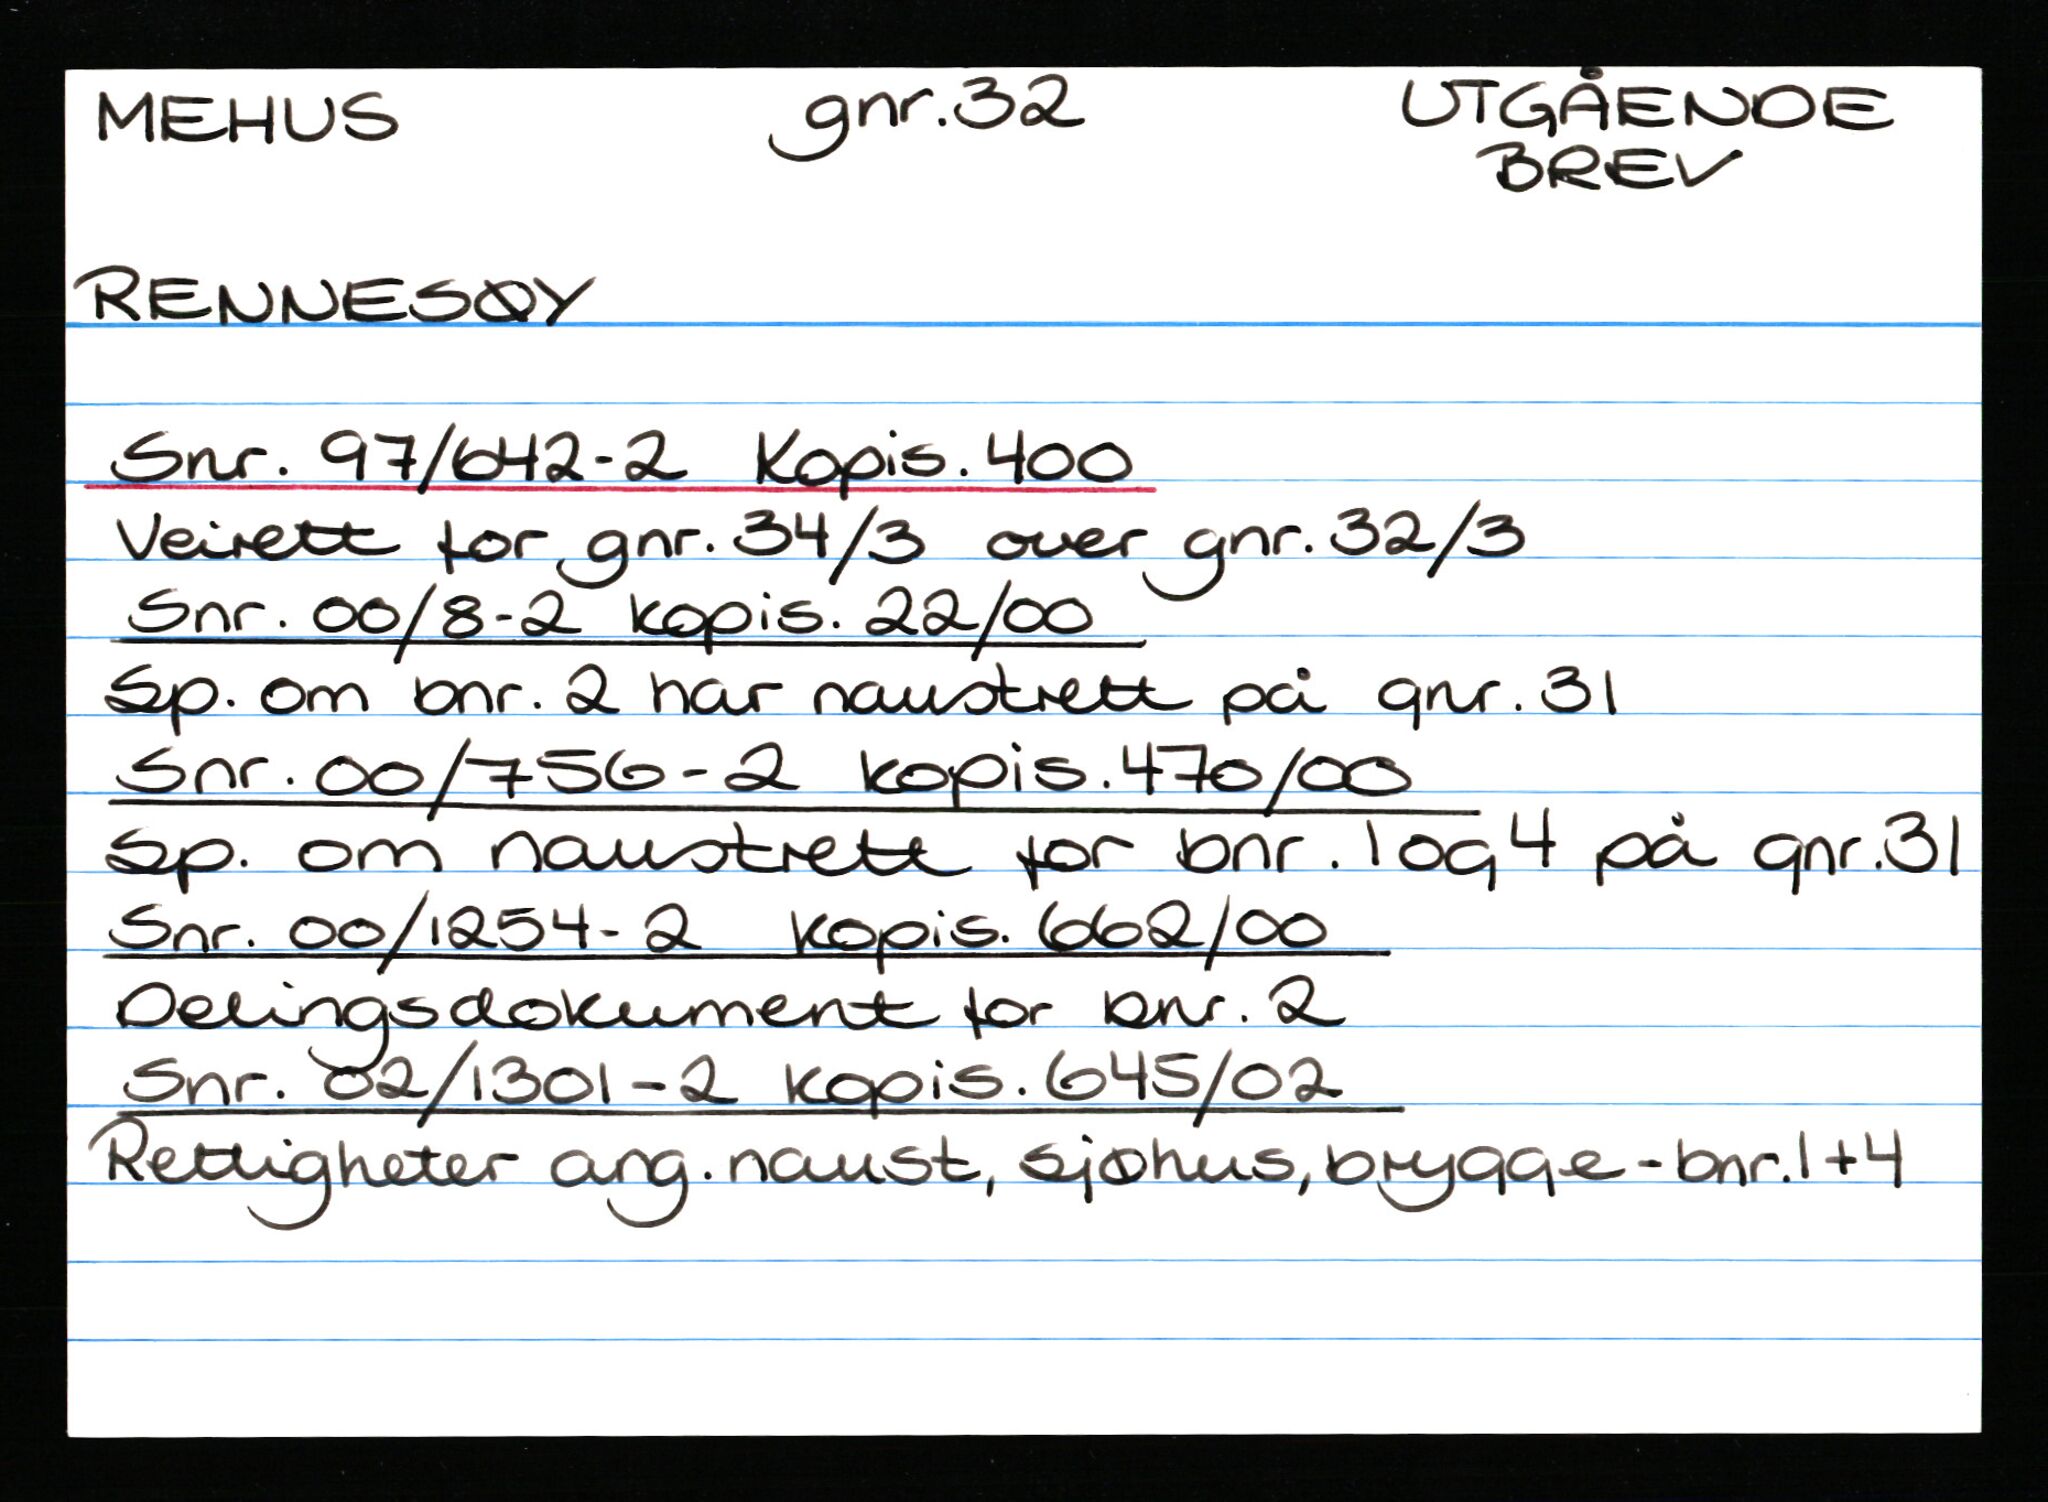 MEHUS gnr. 32 UTGÅENDE
BREV
RENNESØY
Snr. 97/642-2 Kopis. 400
Veirett for gnr. 34/3 over gnr. 32/3
Snr. 00/8-2 kopis. 22/00
Sp. om bnr. 2 har naustrett på gnr. 31
Snr. 00/756-2 kopis. 470/00
Sp. om naustrett for bnr. 1 og 4 på gnr. 31
Snr. 00/1254-2 kopis. 662/00
Delingsdokument for bnr. 2
Snr. 02/1301-2 kopis. 645/02
Rettigheter ang. naust, sjøhus, brygge - bnr. 1+4